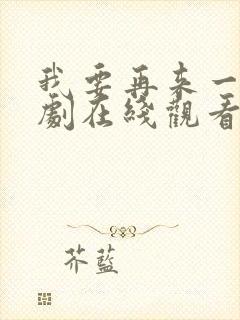 我要再来一
劇在綫觀看
芥藍